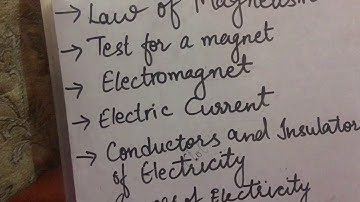 → Law of Magnetism
→ Test for a magnet
→ Electromagnet
→ Electric Current
→ Conductors and Insulator
of Electricity
of Electricity